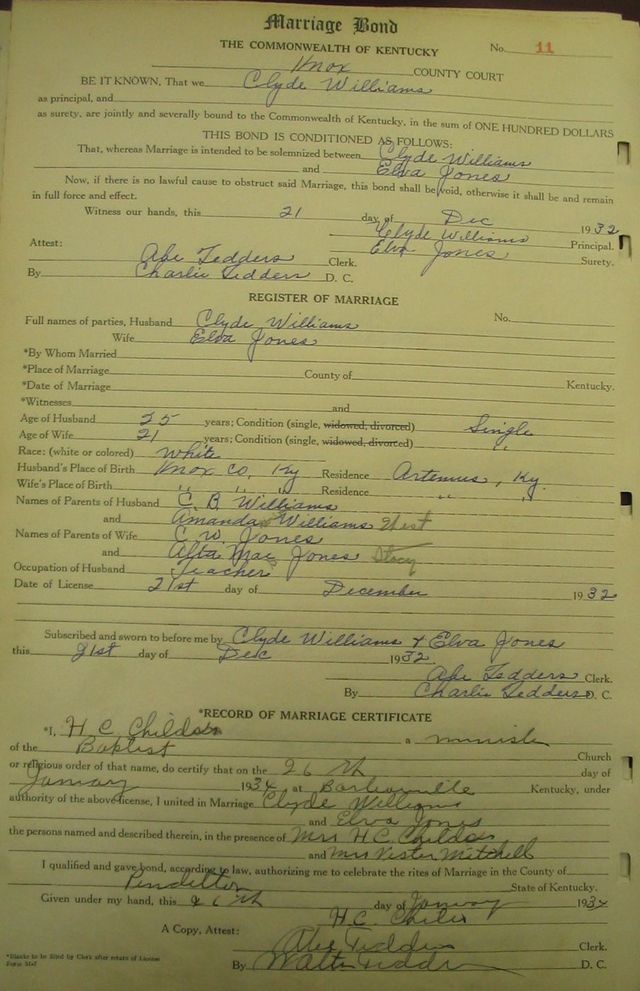 Marriage Bond
THE COMMONWEALTH OF KENTUCKY No. 11
Knox COUNTY COURT
BE IT KNOWN, That we Clyde Williams
as principal, and
as surety, are jointly and severally bound to the Commonwealth of Kentucky, in the sum of ONE HUNDRED DOLLARS
THIS BOND IS CONDITIONED AS FOLLOWS:
That, whereas Marriage is intended to be solemnized between Clyde Williams
and Elva Jones
Now, if there is no lawful cause to obstruct said Marriage, this bond shall be void, otherwise it shall be and remain
in full force and effect.
Witness our hands, this 21 day of Dec 1932
Clyde Williams Principal.
Attest: Elva Jones Surety.
Abe Tedders Clerk.
By Charlie Tedders D. C.
REGISTER OF MARRIAGE
Full names of parties, Husband Clyde Williams No.
Wife Elva Jones
*By Whom Married
*Place of Marriage County of Kentucky.
*Date of Marriage
*Witnesses and
Age of Husband 25 years; Condition (single, widowed, divorced) Single
Age of Wife 21 years; Condition (single, widowed, divorced) "
Race: (white or colored) White
Husband's Place of Birth Knox Co, Ky Residence Artemus, Ky.
Wife's Place of Birth " " " Residence " "
Names of Parents of Husband C. B. Williams
and Amanda Williams West
Names of Parents of Wife C. W. Jones
and Alta Mae Jones Stacy
Occupation of Husband Teacher
Date of License 21st day of December 1932
Subscribed and sworn to before me by Clyde Williams & Elva Jones
this 21st day of Dec 1932
Abe Tedders Clerk.
By Charlie Tedders D. C.
*RECORD OF MARRIAGE CERTIFICATE
*I, H C Childs a minister
of the Baptist Church
or religious order of that name, do certify that on the 26th day of
January 1934 at Barbourville Kentucky, under
authority of the above license, I united in Marriage Clyde Williams
and Elva Jones
the persons named and described therein, in the presence of Mrs H. C. Childs
and Mrs Mitchell
I qualified and gave bond, according to law, authorizing me to celebrate the rites of Marriage in the County of
Pendleton State of Kentucky.
Given under my hand, this 26th day of January 1934
H. C. Childs
A Copy, Attest: Abe Tedders Clerk.
By Walter Tedders D. C.
*Blanks to be filled by Clerk after return of License